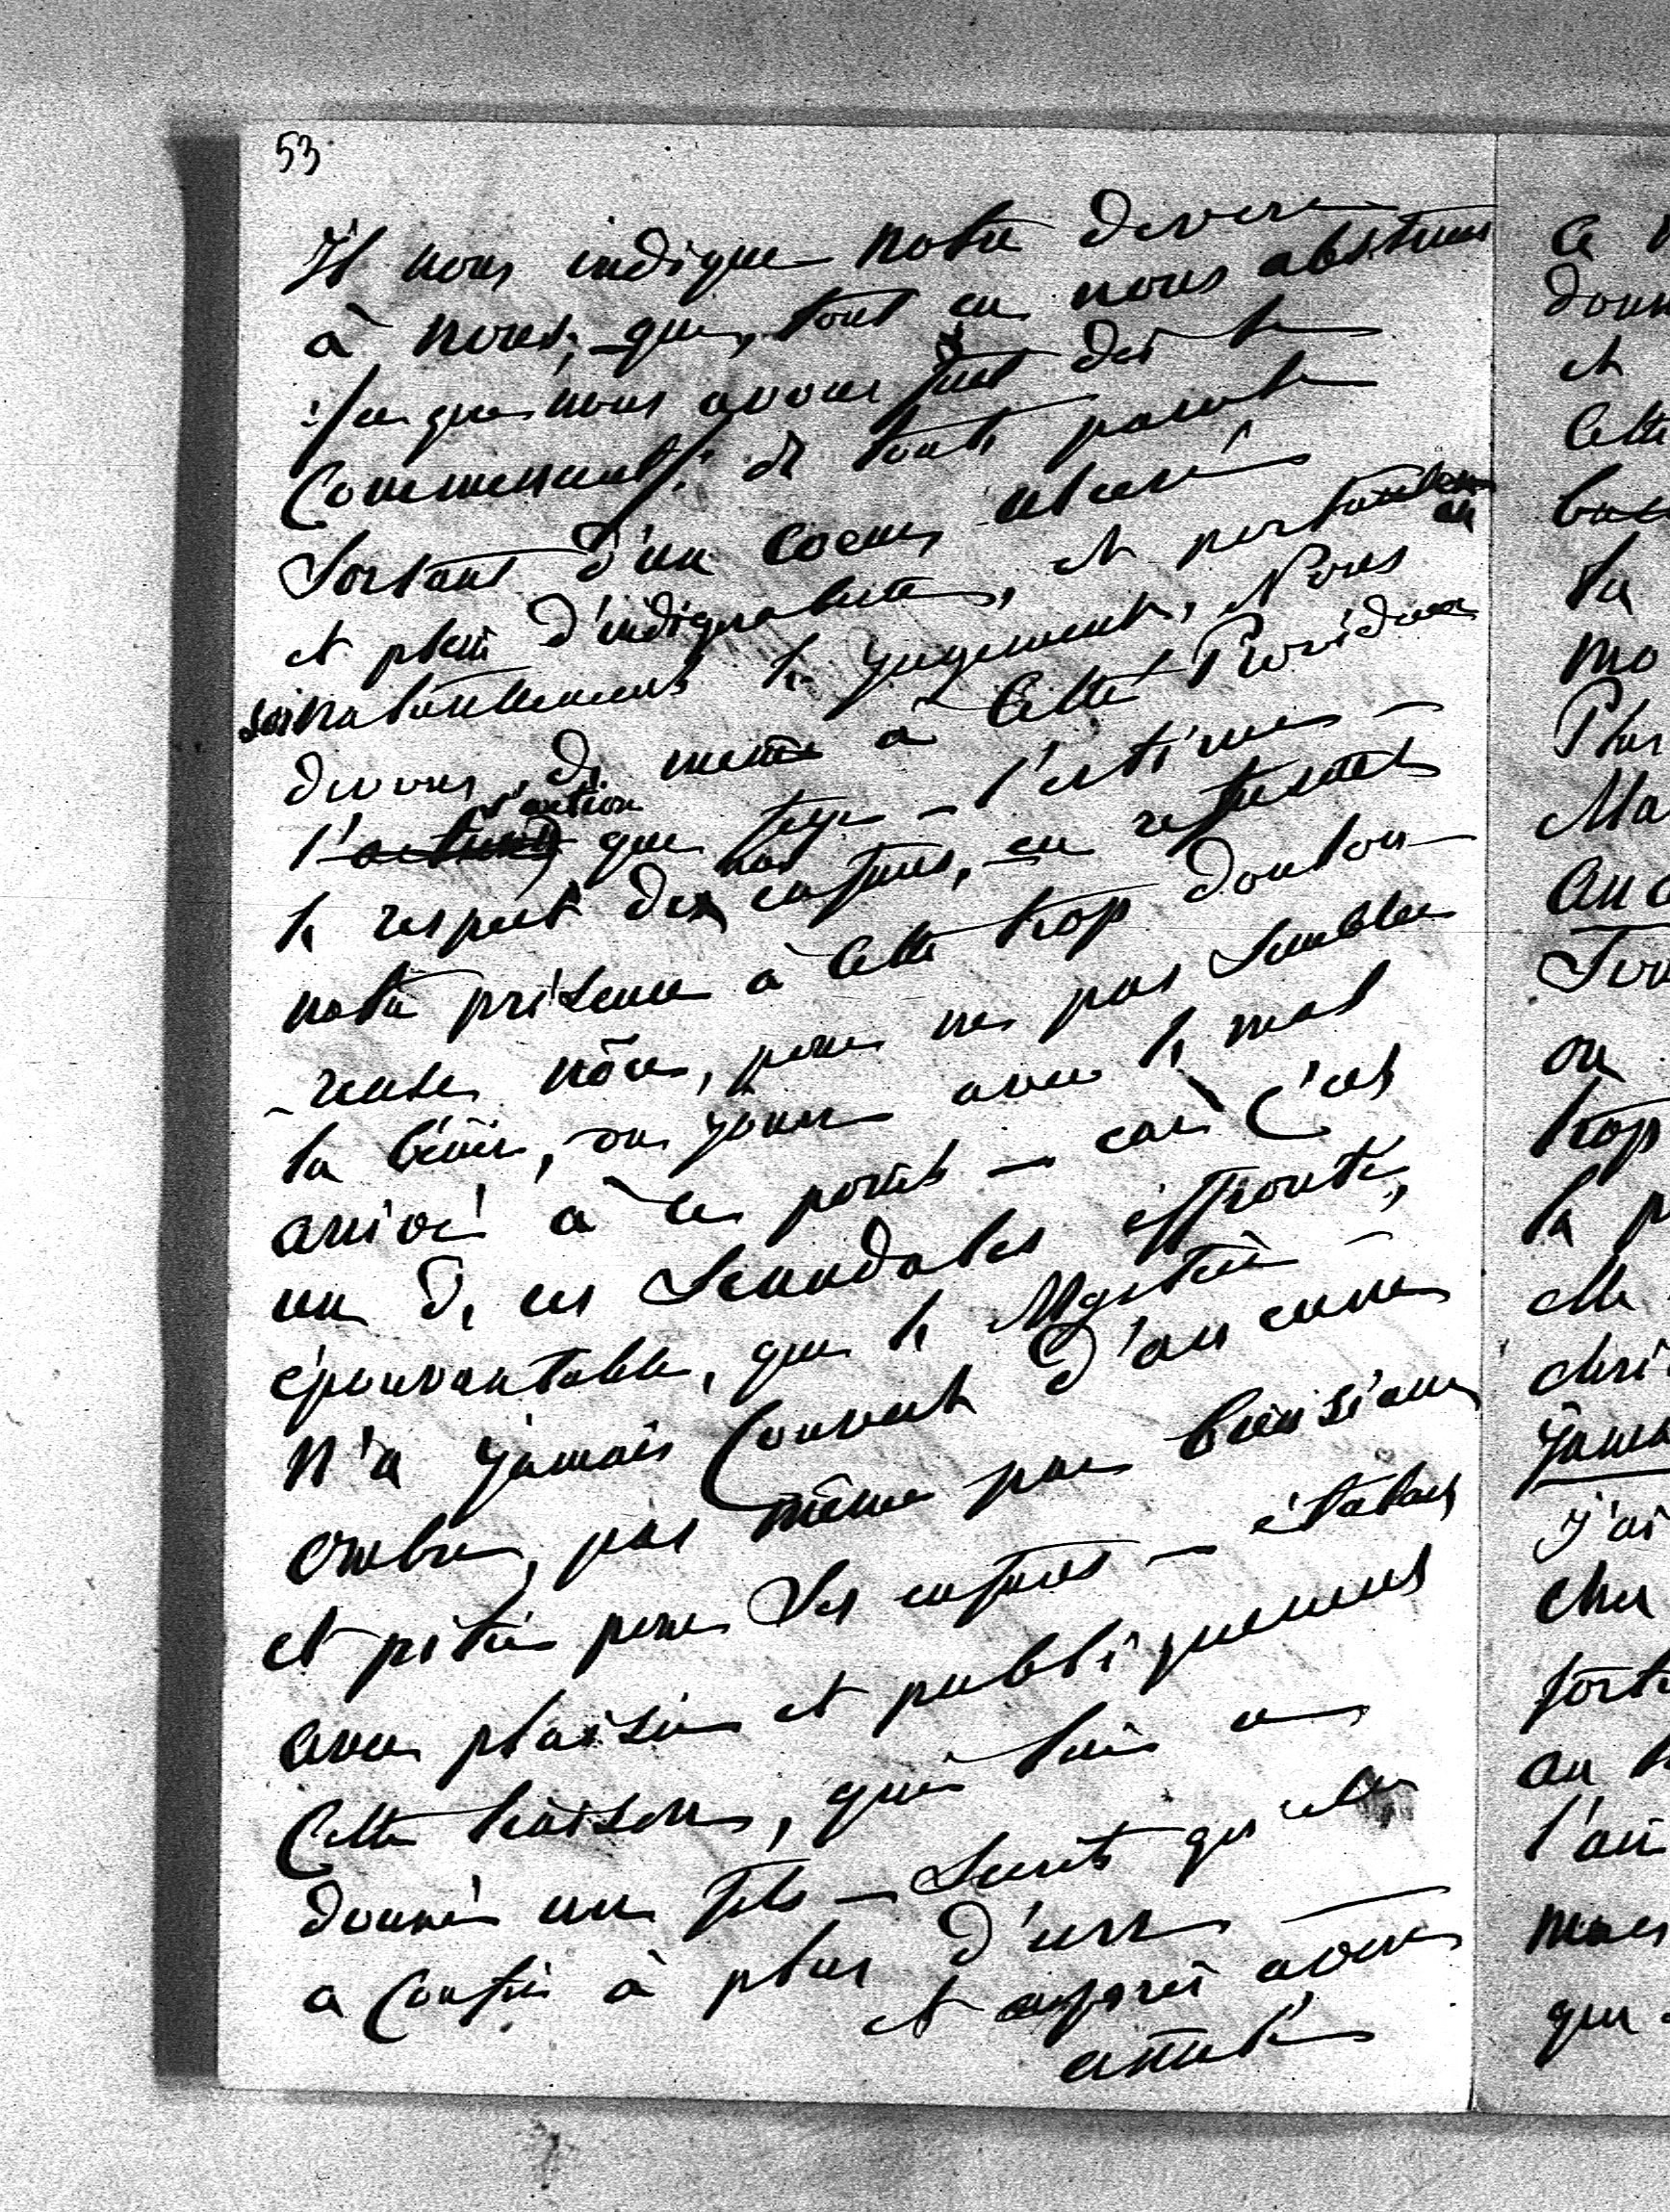 53
Il nous indique notre devoir
à nous, que, tout en nous abstenant
(ce que nous avons fait dès le
commencement) de toute parole
sortant d'un coeur ulcéré
et plein d'indignation, et portant en
soi naturellement le jugement, Nous
devons de même à cette Providence
l'action que exige l'estime
le respect des nos enfants, en refusant
notre présence à cette trop doulou-
reuse nôce, pour ne pas sembler
la bénir, ou jouer avec le mal
arrivé à ce point — car c'est
un de ces scandales éffronté,
épouvantable, que le Mystère
n'a jamais couvert d'aucune
ombre, pas même par bienséance
et pitié pour ses enfants — étalant
avec plaisir et publiquement
cette liaison, qui lui a
donné un fils — secret qu'elle
a confié à plus d'un
et après avoir
ce
donn
et
cette
la
mo
Plus
Ma
au
ou
trop
la p
elle
chri
jama
j'ai
cher
forte
au
l'ai
mais
que